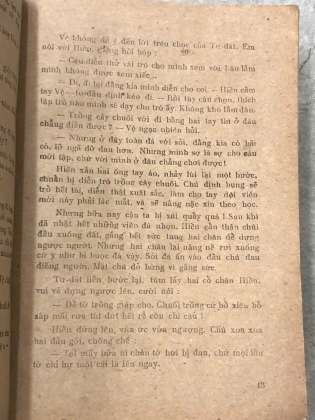 Vẽ không để ý đến lời trêu chọc của Tư-dát. Em
nói với Hiền, giọng hồi hộp:
— Cậu diễn thử vài trò cho mình xem với. Lâu lắm
mình không được xem xiếc...
— Ừ, đi lại đằng kia mình diễn cho coi. — Hiền cầm
tay Vệ — tơ đâu định kéo đi. — Rồi tùy cậu chọn, thích
tập trò nào mình sẽ dạy cho trò ấy. Không khó lắm đâu.
— Trồng cây chuối với đi bằng hai tay thì ở đâu
chẳng diễn được? — Vệ ngạc nhiên hỏi.
— Nhưng ở đây toàn đá với sỏi, đằng kia có bãi
cỏ, lỡ ngã đỡ đau hơn. Nhưng mình sợ là sợ cho cậu
mới tập, chứ với mình ở đâu chẳng chơi được!
Hiền xắn hai ống tay áo, nhảy lùi lại một bước,
chuẩn bị diễn trò trồng cây chuối. Chú định bụng sẽ
trổ hết tài, diễn thật xuất sắc, làm cho tay đội viên
mới này phải lác mắt, và sẽ nằng nặc xin theo học.
Nhưng bữa nay cậu ta bị xúi quẩy quá! Sau khi
đã nhặt hết những viên đá nhọn, Hiền cắn thân chúi
đầu xuống đất, gắng hết sức tung hai chân để dựng
ngược người. Nhưng hai chân lại nặng nề rơi xuống
cứ y như bị buộc đá vậy. Sỏi đá ấn vào đầu chú đau
điếng người. Mặt chú đỏ bừng vì gắng sức.
Tư-dát liền bước lại, túm lấy hai cổ chân Hiền,
vui vẻ dựng ngược lên, cười nói:
— Để tớ trồng giúp cho. Chuối trồng cứ bổ xiêu bổ
xấp mãi rứa thì dứt hết rễ còn chi cậu!
Hiền đứng lên, vừa ức vừa ngượng. Chú xoa xoa
hai đầu gối, chống chế:
— Tại mấy bữa ni chân tớ hơi bị đau, chứ mọi lần
tớ chỉ hự một cái là lên ngay.
43